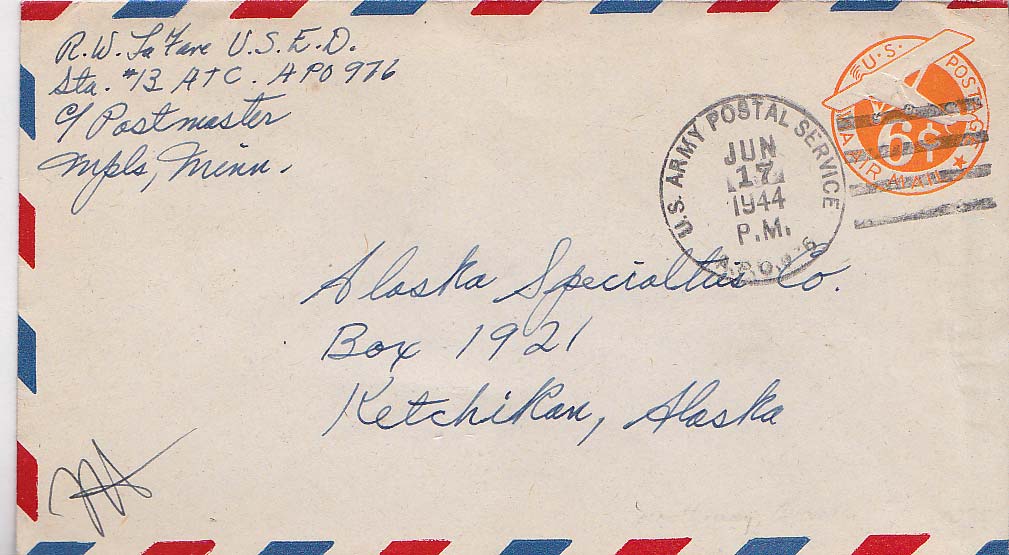 R.W. La Fave U.S.E.D.
Sta. #13 ATC. APO 976
c/ Postmaster
Mpls, Minn.
U.S. POSTAGE
6¢
VIA AIR MAIL
U.S. ARMY POSTAL SERVICE
JUN
17
1944
P.M.
A.P.O.
Alaska Specialties Co.
Box 1921
Ketchikan, Alaska